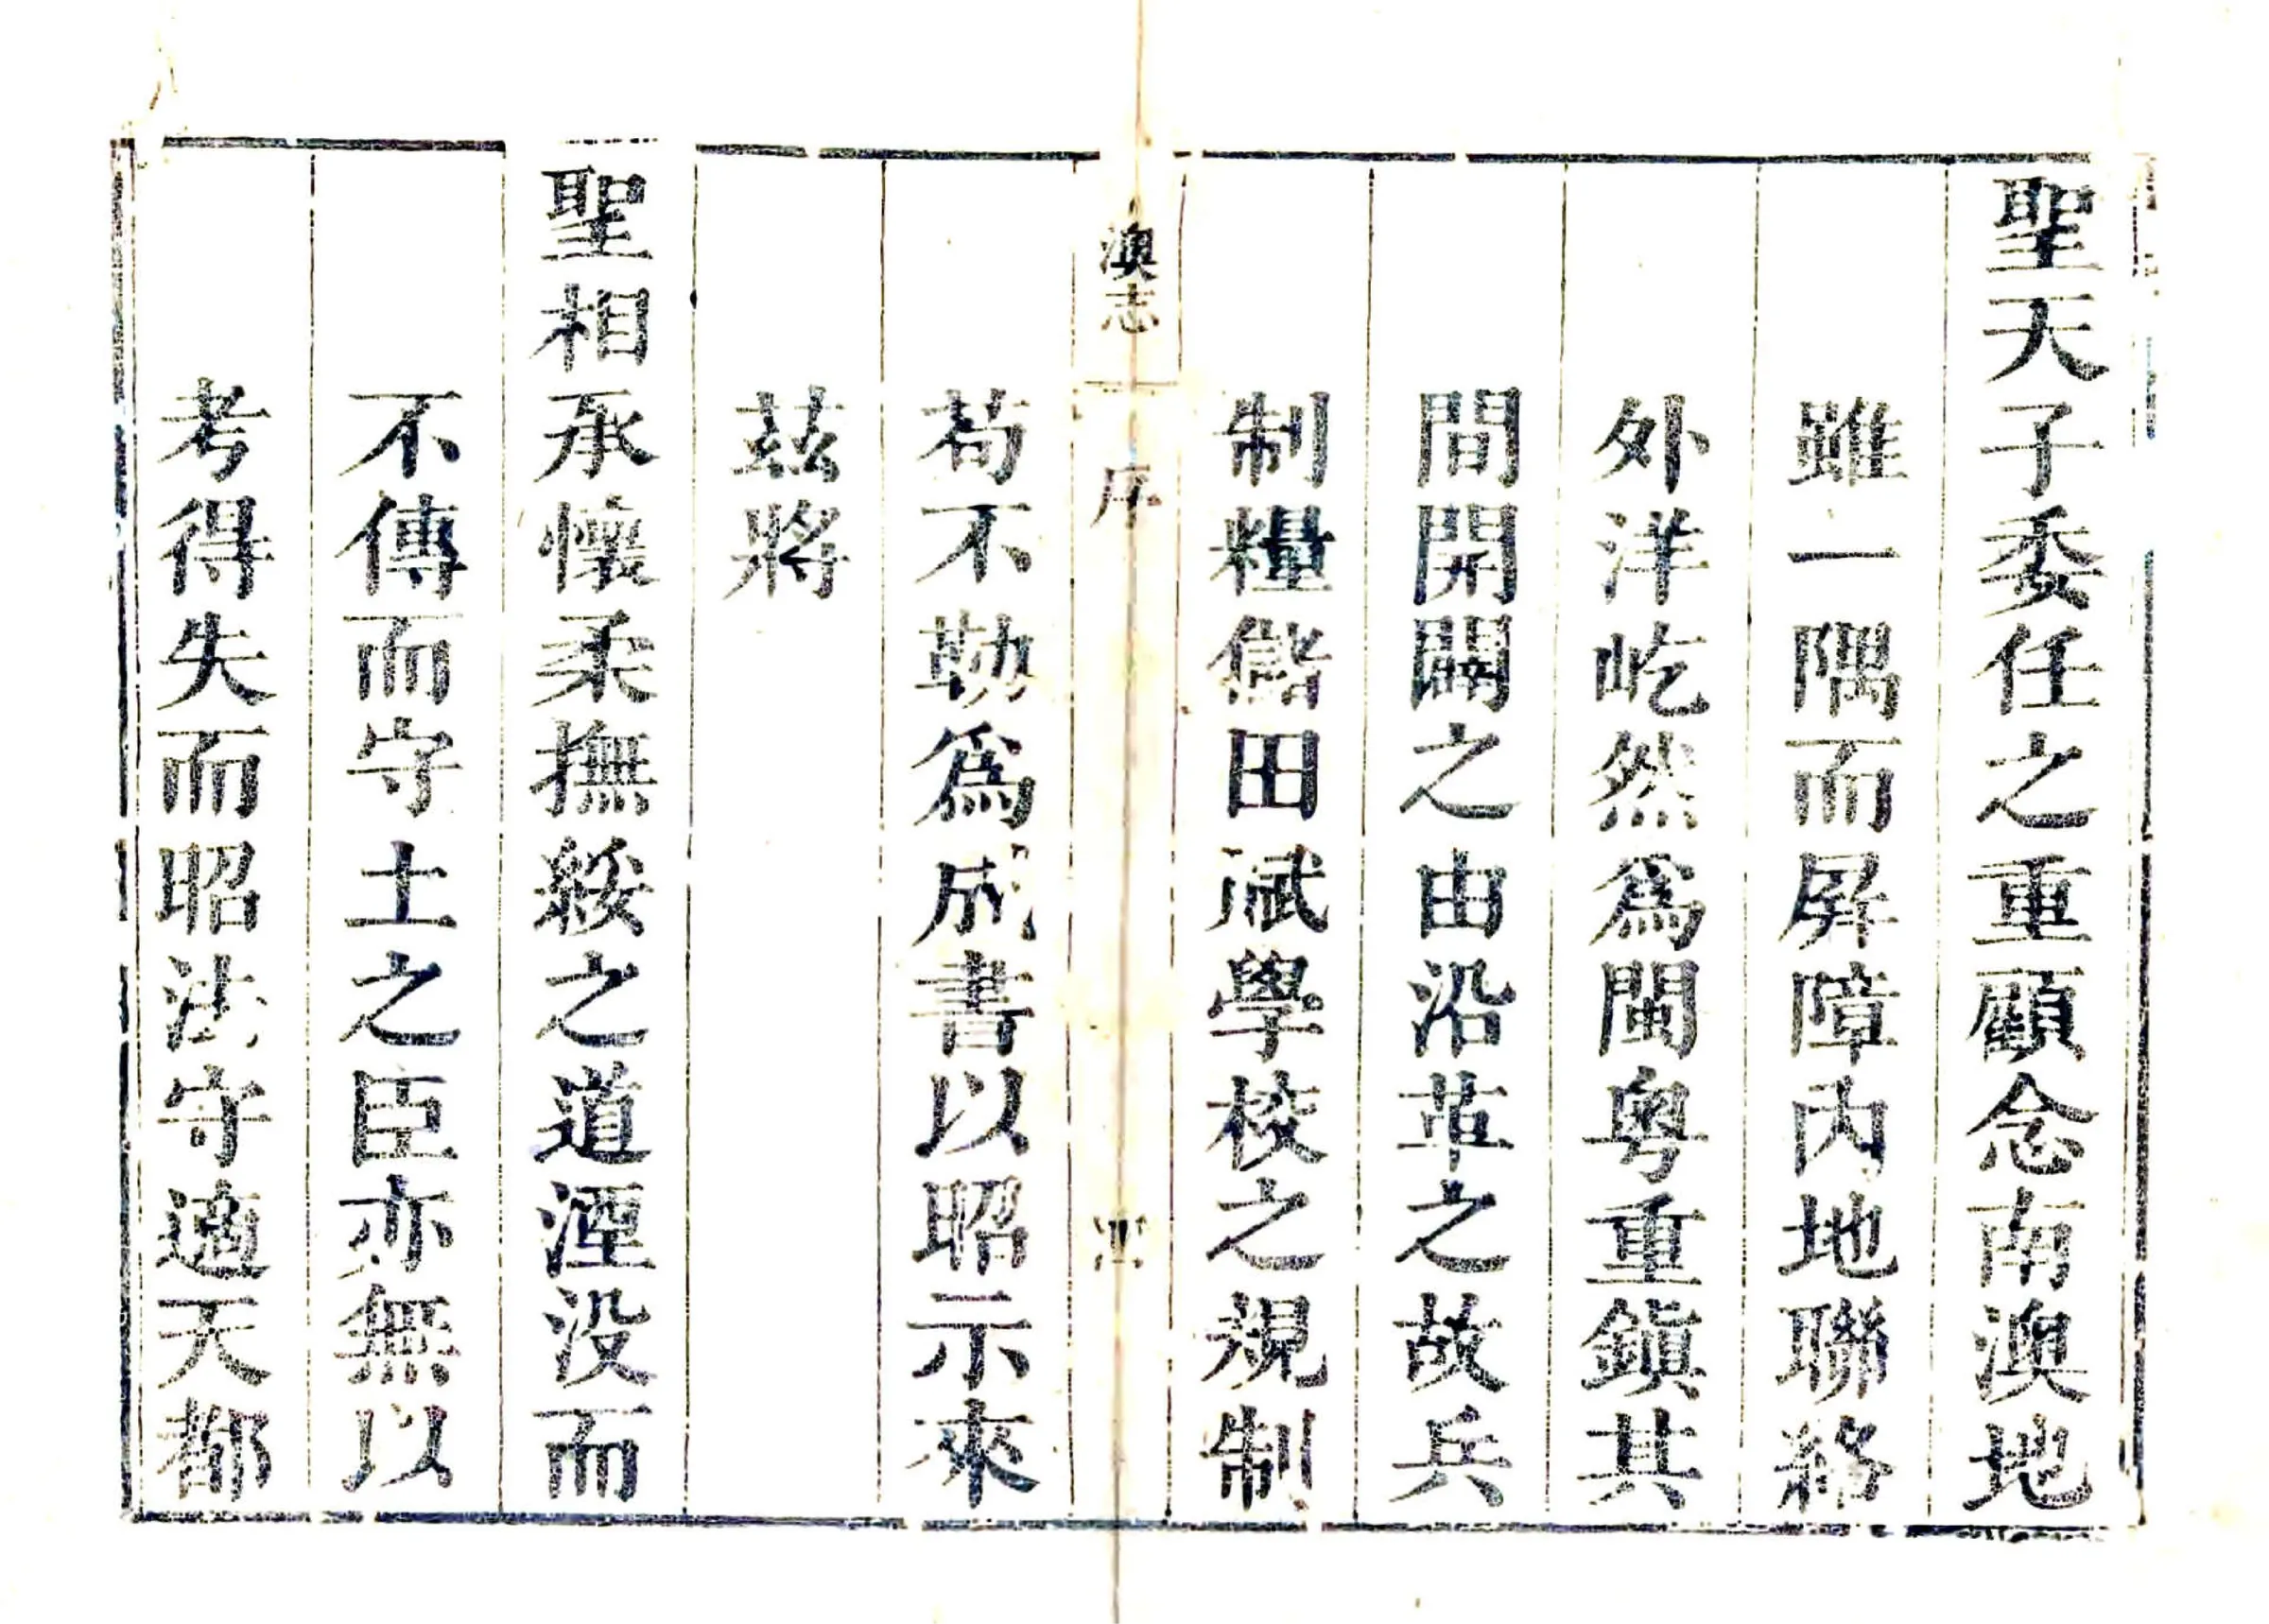 聖天子委任之重顧念南澳地
雖一隅而屏障內地聯絡
外洋屹然爲閩粤重鎭其
間開闢之由沿革之故兵
制糧儲田賦學校之規制
澳志
序
苟不勒爲成書以昭示來
茲將
聖相承懷柔撫綏之道湮没而
不傳而守土之臣亦無以
考得失而昭法守適天都